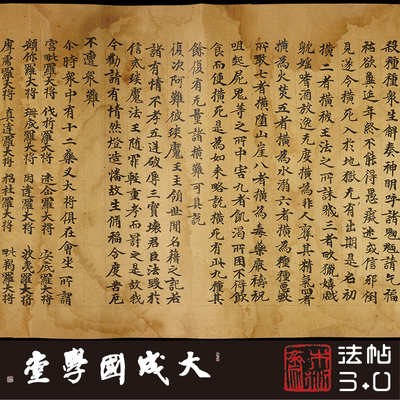 種種眾生解奏神明呼諸魍魎請乞福
祐欲冀延年終不能得愚癡迷或信邪倒
見遂令橫死入於地獄无有出期是名初
橫二者橫被王法之所誅戮三者畋獵嬉戲
躭婬嗜酒放逸无度橫為非人奪其精氣四者
橫為火焚五者橫為水溺六者橫為種種惡獸
所噉七者橫墮山崖八者橫為毒藥厭禱呪
咀起屍鬼等之所中害九者飢渴所困不得飲
食而便橫死是為如來略說橫死有此九種其
餘復有无量諸橫難可具說
復次阿難彼琰魔王主領世間名籍之記若
諸有情不孝五逆破辱三寶壞君臣法毀於
信戒琰魔法王隨罪輕重考而罰之是故我
今勸諸有情然燈造幡放生脩福令度苦厄
不遭眾難
尒時眾中有十二藥叉大將俱在會坐所謂
宮毗羅大將 伐折羅大將 迷企羅大將 安底羅大將
頞你羅大將 珊底羅大將 因達羅大將 波夷羅大將
摩虎羅大將 真達羅大將 招杜羅大將 毗羯羅大將
大成國學堂
法帖
3.0